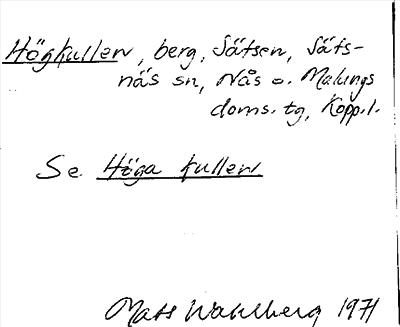 Högkullen, berg, Sätsen, Säfs-
näs sn, Nås o. Malungs
doms. tg, Kopp. l.
Se Höga kullen
Mats Wahlberg 1971